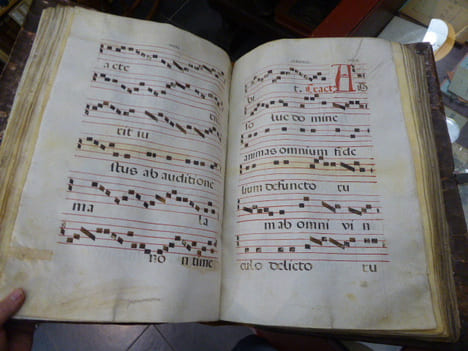 a ete
rit iu
stus ab auditione
ma la
no n time
bi t. Tract A B
so lue do mine
animas omnium fide
lium defuncto ru
m ab omni vi n
culo delicto ru